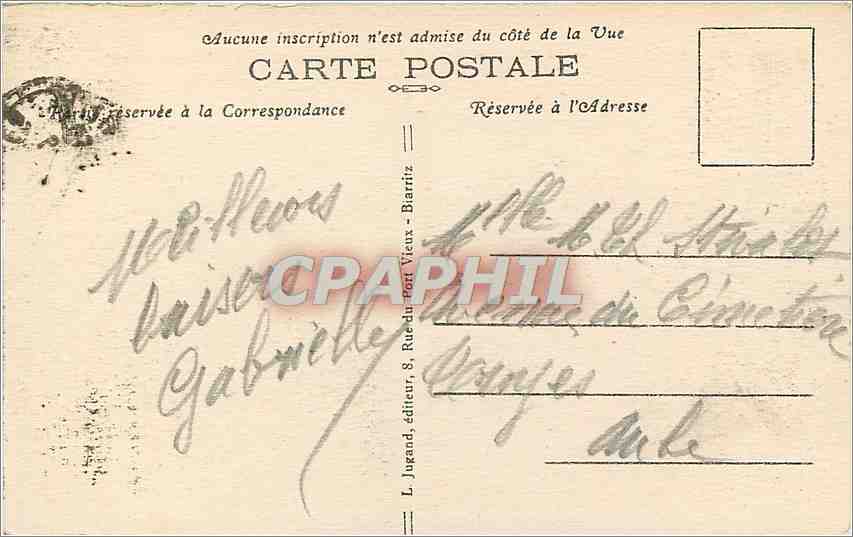 Aucune inscription n'est admise du côté de la Vue
CARTE POSTALE
Partie réservée à la Correspondance
Réservée à l'Adresse
Meilleurs
baisers
Gabrielle
L. Jugand, éditeur, 8, Rue du Port Vieux - Biarritz
CPAPHIL
Mlle
Avenue du Cimetière
Aube